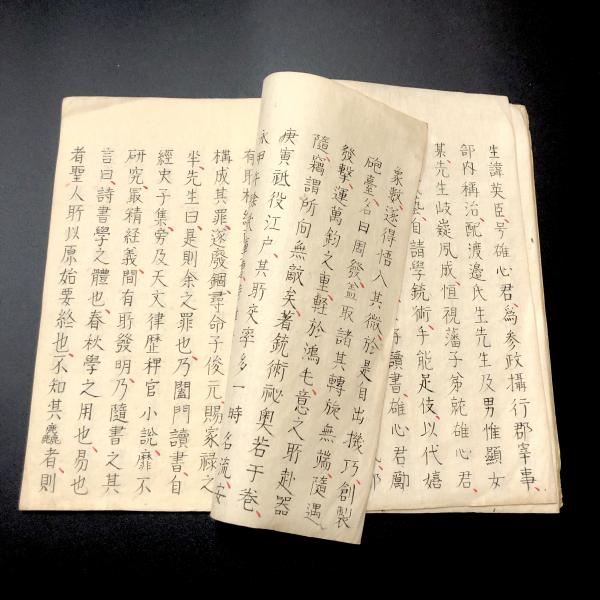 生諱英臣号雄心君爲參政攝行郡宰事
部内稱治配渡邉氏生先生及男惟顯女
某先生岐嶷夙成恒視藩子弟就雄心君
藝自請學銃術手能足伎以代嬉
好讀書雄心君勵
象數遂得悟入其微於是自出機乃創製
砲臺名曰周發盖取諸其轉旋無端隨遇
發擊運萬鈞之重輕於鴻毛意之所赴器
隨竊謂所向無敵矣著銃術祕奥若干卷
庚寅祗役江户其所交率多一時名流安
永甲午
有所
構成其罪遂廢錮尋命子俊元賜家禄之
半先生曰是則余之罪也乃闔門讀書自
經史子集旁及天文律歴稗官小説靡不
研究最精経義間有所發明乃隨書之其
言曰詩書學之體也春秋學之用也易也
者聖人所以原始要終也不知其麤者則